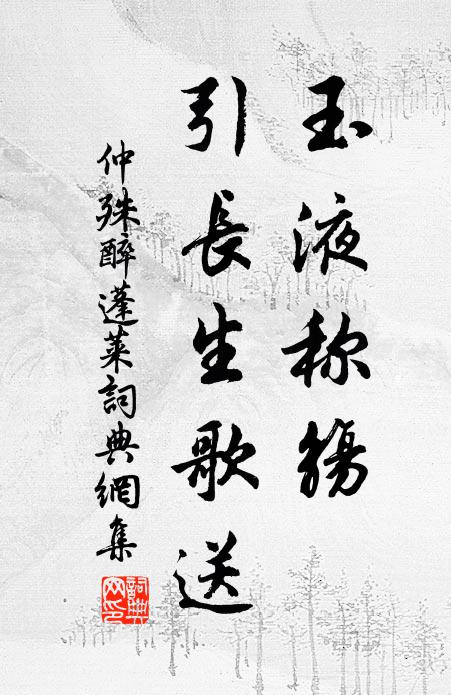 玉液称觴
引長生歌送
仲殊醉蓬萊詞典網集
詞典網印